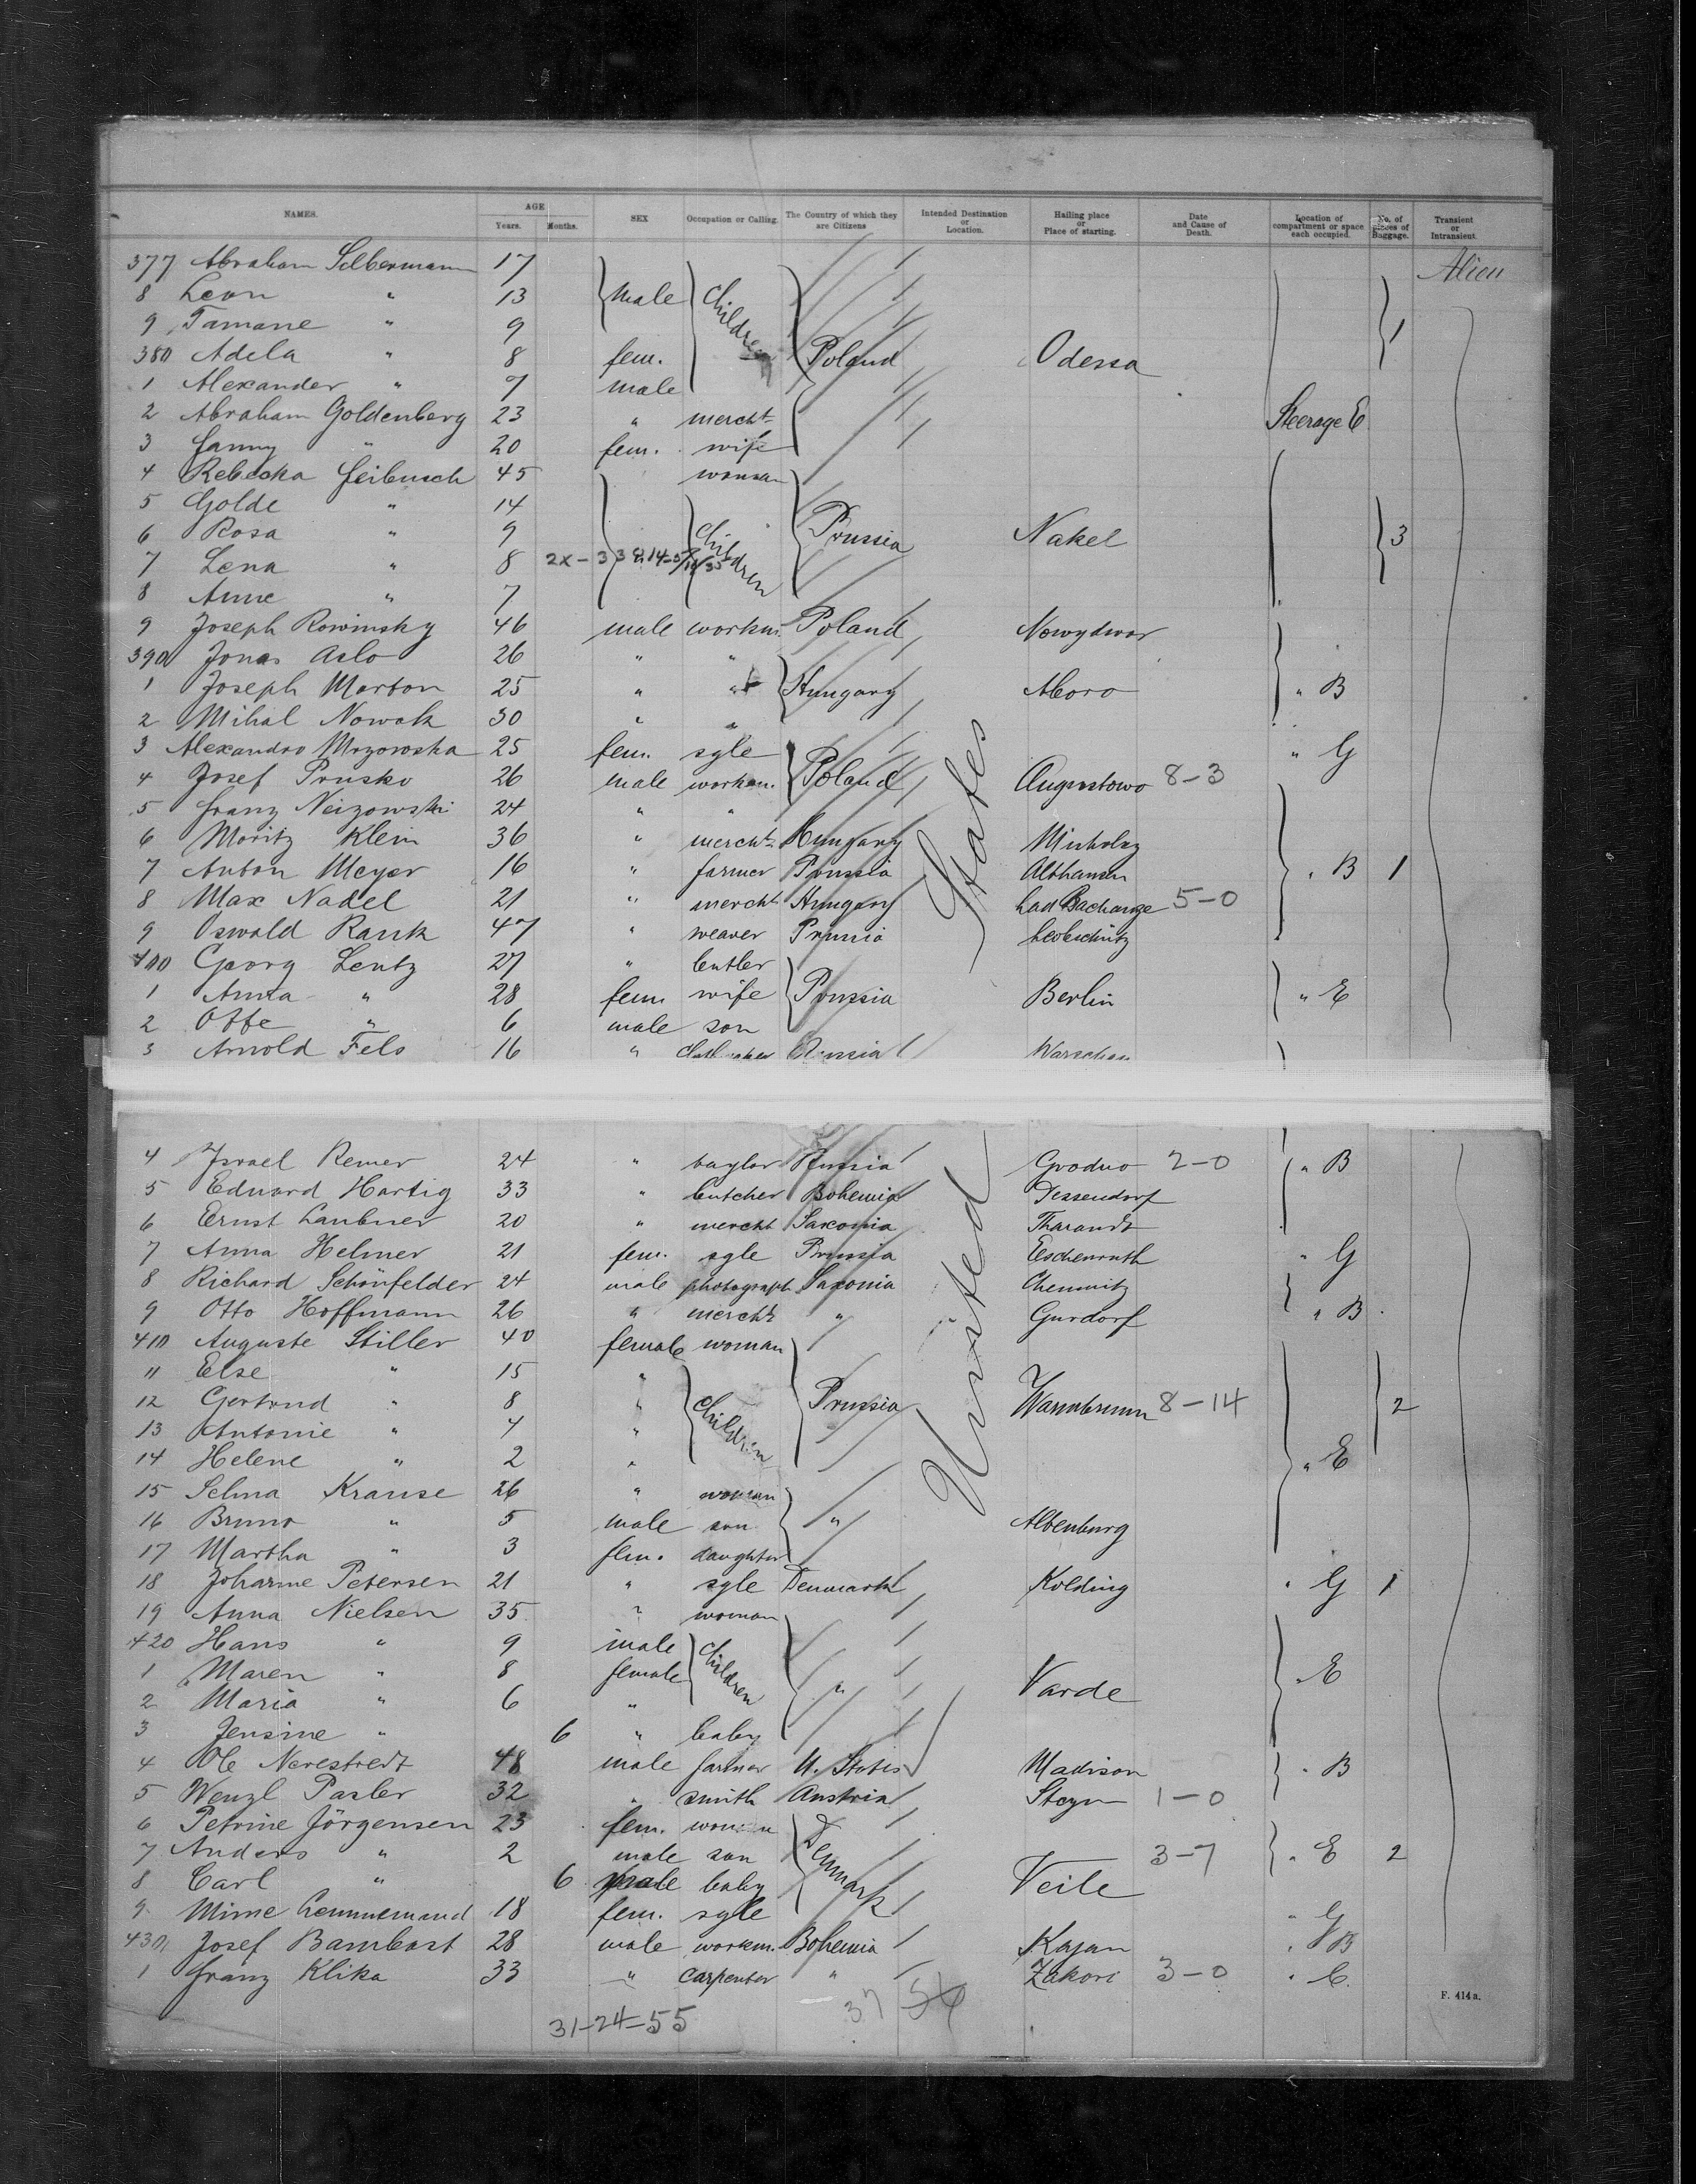 NAMES. AGE Years. Months. SEX Occupation or Calling. The Country of which they are Citizens Intended Destination or Location. Hailing place or Place of starting. Date and Cause of Death. Location of compartment or space each occupied. No. of pieces of Baggage. Transient or Intransient.
377 Abraham Silbermann 17 Alien
8 Leon " 13 male Children
9 " 9 1
380 Adela " 8 fem. Poland Odessa
1 Alexander " 7 male
2 Abraham Goldenberg 23 " mercht Steerage E
3 Fanny " 20 fem. wife
4 Rebecka Feibusch 45 woman
5 Golde " 14
6 Rosa " 9 Children Prussia Nakel 3
7 Lena " 8 2X-3
8 Anne " 7
9 Joseph Rowinsky 46 male workm. Poland Nowydwor
390 Jonas Aslo 26 " "
1 Joseph Marton 25 " " Hungary Aboro " B
2 Mihal Nowak 30 " "
3 Alexandro Mrzowska 25 fem. sgle " G
4 Josef Prusko 26 male workm. Poland Augustowo 8-3
5 Franz Neizowski 24 " "
6 Moritz Klein 36 " mercht Hungary Miskolz
7 Anton Meyer 16 " farmer Prussia Althausen " B 1
8 Max Nadel 21 " mercht Hungary 5-0
9 Oswald Rank 47 " weaver Prussia Leobschütz
400 Georg Lentz 27 " butler
1 Anna " 28 fem. wife Prussia Berlin " E
2 Otto " 6 male son
3 Arnold Fels 16 " Russia Warschau
States
4 Israel Remer 24 " taylor Russia Grodno 2-0 " B
5 Eduard Hartig 33 " butcher Bohemia Dessendorf
6 Ernst Laubner 20 " mercht Saxonia Tharandt
7 Anna Helmer 21 fem. sgle Prussia Eschenruth " G
8 Richard Schönfelder 24 male photograph Saxonia Chemnitz
9 Otto Hoffmann 26 " mercht " Gurdorf " B
410 Auguste Stiller 40 female woman
11 Else " 15 "
12 Gertrud " 8 " Children Prussia Warmbrunn 8-14 2
13 Antonie " 4 "
14 Helene " 2 " " E
United
15 Selma Krause 26 " woman
16 Bruno " 5 male son " Altenburg
17 Martha " 3 fem. daughter
18 Johanne Petersen 21 " sgle Denmark Kolding " G 1
19 Anna Nielsen 35 " woman
420 Hans " 9 male Children
1 Maren " 8 female " Varde " E
2 Maria " 6 "
3 Jensine " 6 " baby
4 Ole Nerestredt 48 male farmer U. States Madison " B
5 Wenzl Pasler 32 " smith Austria Steyr 1-0
6 Petrine Jörgensen 23 fem. woman Denmark
7 Anders " 2 male son 3-7 " E 2
8 Carl " 6 male baby Veile
9 Mime Lemmemand 18 fem. sgle " G
430 Josef Bambast 28 male workm. Bohemia Kajan " B
1 Franz Klika 33 " carpenter " Zakori 3-0 "
F. 414 a.
31-24-55 37 54